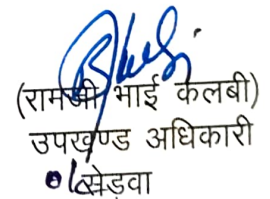 (रामजी भाई कलबी)
उपखण्ड अधिकारी
सेड़वा